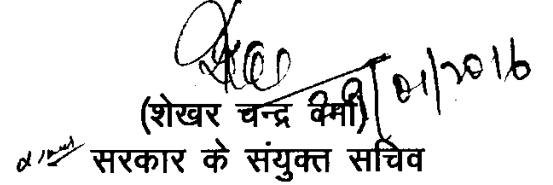 01/2016
(शेखर चन्द्र वर्मा)
सरकार के संयुक्त सचिव